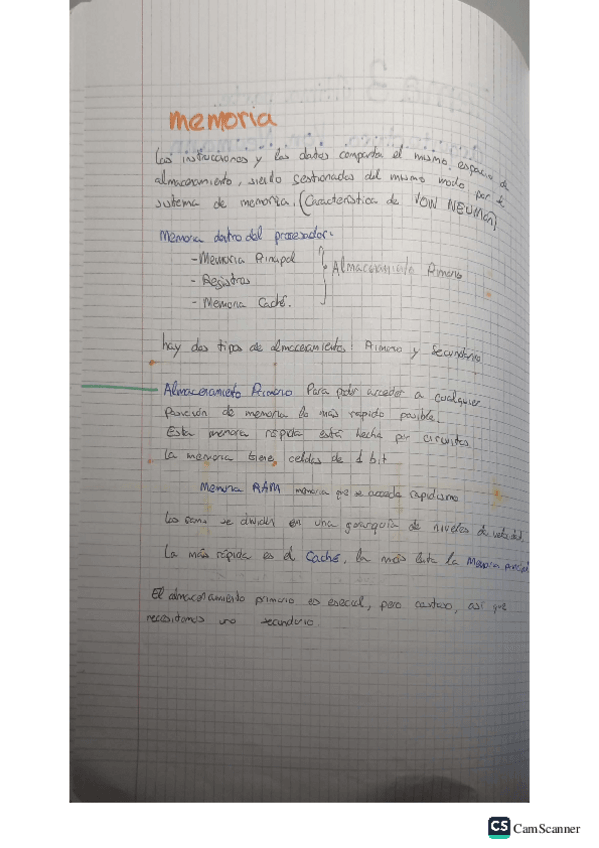 memoria
Las instrucciones y los datos comparten el mismo espacio de
almacenamiento, siendo gestionados del mismo modo por el
sistema de memoria. (Característica de VOIN NEUMAN)
Memoria dentro del procesador:
- Memoria Principal
- Registros
- Memoria Caché.
Almacenamiento Primario
hay dos tipos de almacenamiento: Primario y Secundario
Almacenamiento Primario Para poder acceder a cualquier
posición de memoria lo más rápido posible.
Esta memoria rápida está hecha por circuitos
La memoria tiene celdas de 1 bit
Memoria RAM memoria que se accede rapidísimo
se dividen en una jerarquía de niveles de velocidad.
La más rápida es el Caché, la más lenta la Memoria Principal
El almacenamiento primario es esencial, pero costoso, así que
necesitamos uno secundario.
CS CamScanner